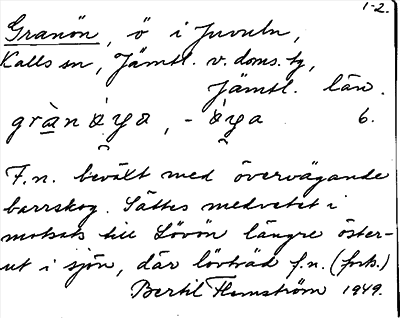 1-2.
Granön, ö i Juveln,
Kalls sn, Jämtl. v. doms. tg,
Jämtl. län.
6.
F.n. beväxt med övervägande
barrskog. Sättes medvetet i
motsats till Lövön längre öster-
ut i sjön, där lövträd f.n. (forts.)
Bertil Flemström 1949.